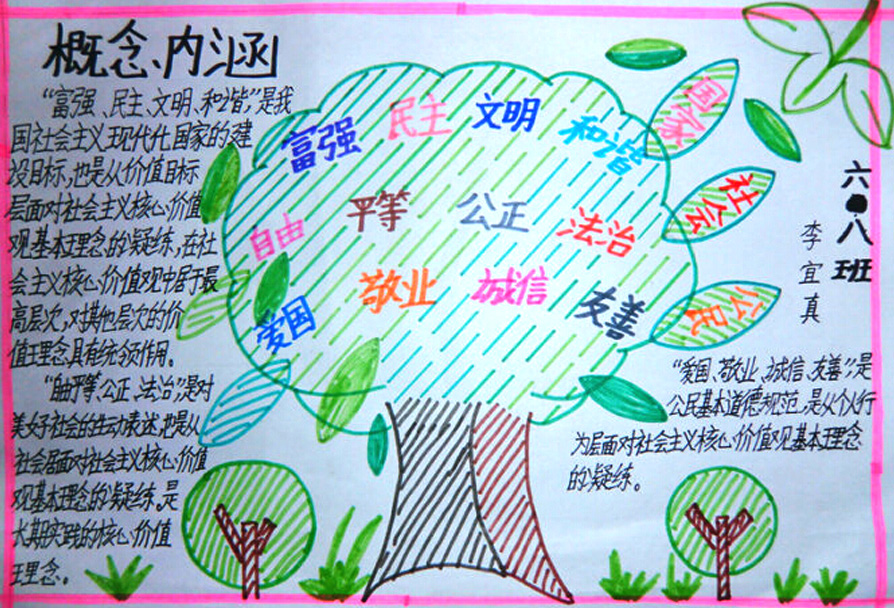 概念、内涵
“富强、民主、文明、和谐”,是我
国社会主义现代化国家的建
设目标,也是从价值目标
层面对社会主义核心价值
观基本理念的凝练,在社
会主义核心价值观中居于最
高层次,对其他层次的价
值理念具有统领作用。
“自由平等、公正、法治”,是对
美好社会的生动表述,也是从
社会层面对社会主义核心价值
观基本理念的凝练。是
长期实践的核心价值
理念。
富强 民主 文明 和谐
自由 平等 公正 法治
爱国 敬业 诚信 友善
国家
社会
公民
六●八班
李宜真
“爱国、敬业、诚信、友善”,是
公民基本道德规范,是从个人行
为层面对社会主义核心价值观基本理念
的凝练。